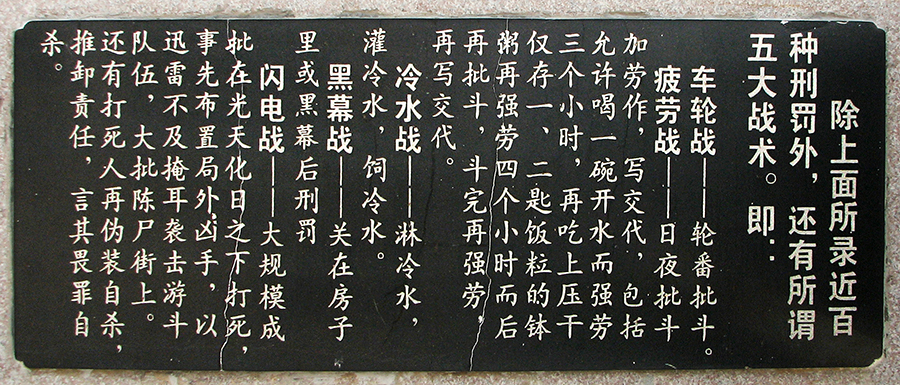 除上面所录近百
种刑罚外，还有所谓
五大战术。即：
车轮战——轮番批斗。
疲劳战——日夜批斗
加劳作，写交代，包括
允许喝一碗开水而强劳
三个小时，再吃上压干
仅存一、二匙饭粒的钵
粥再强劳四个小时而后
再批斗，斗完再强劳，
再写交代。
冷水战——淋冷水，
灌冷水，饲冷水。
黑幕战——关在房子
里或黑幕后刑罚
闪电战——大规模成
批在光天化日之下打死，
事先布置局外凶手，以
迅雷不及掩耳袭击游斗
队伍，大批陈尸街上。
还有打死人再伪装自杀，
推卸责任，言其畏罪自
杀。